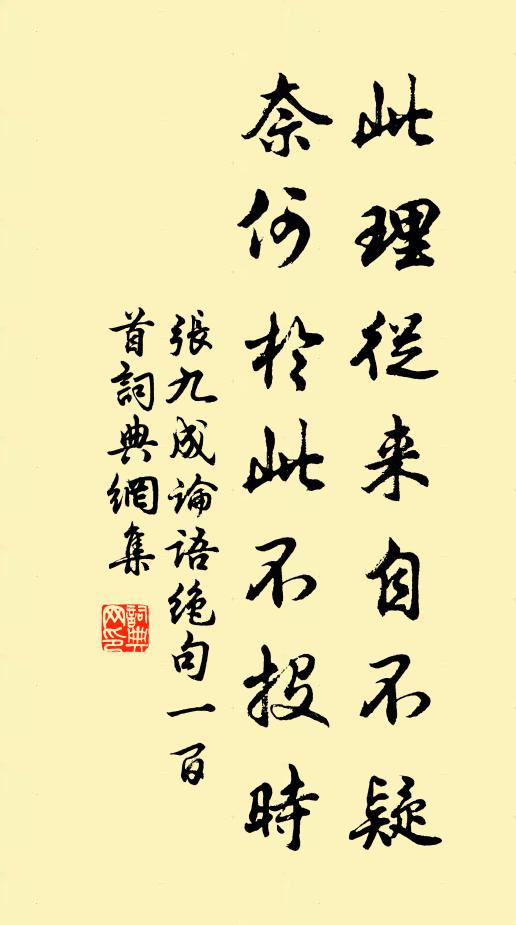 此理從来自不疑
奈何於此不投時
張九成論語绝句一百
首詞典網集
詞典
网印